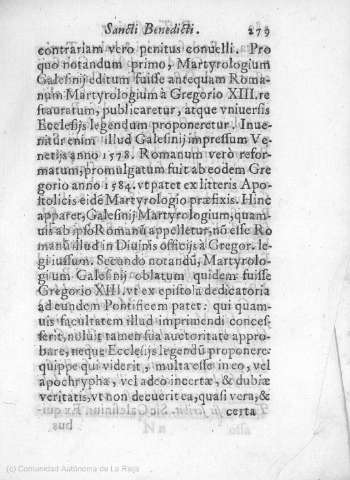 Sancti Benedicti. 279
contrariam vero penitus conuelli. Pro
quo notandum primo, Martyrologium
Galesinij editum fuisse antequam Roma-
num Martyrologium à Gregorio XIII. re
stauratum, publicaretur, atque vniuersis
Ecclesijs legendum proponeretur. Inue-
nitur enim illud Galesinij impressum Ve-
netijs anno 1578. Romanum verò refor-
matum, promulgatum fuit ab eodem Gre
gorio anno 1584. vt patet ex litteris Apo-
stolicis eidē Martyrologio præfixis. Hinc
apparet, Galesinij Martyrologium, quam-
uis ab ipso Romanū appelletur, nō esse Ro
manū illud in Diuinis officijs à Gregor. le-
gi iussum. Secundo notandū, Martyrolo-
gium Galesinij oblatum quidem fuisse
Gregorio XIII. vt ex epistola dedicatoria
ad eundem Pontificem patet: qui quam-
uis facultatem illud imprimendi conces-
serit, noluit tamen sua auctoritate appro-
bare, neque Ecclesijs legendū proponere:
quippe qui viderit, multa esse in eo, vel
apochrypha, vel adeo incertæ, & dubiæ
veritatis, vt non decuerit ea, quasi vera, &
certa
(c) Comunidad Autónoma de La Rioja